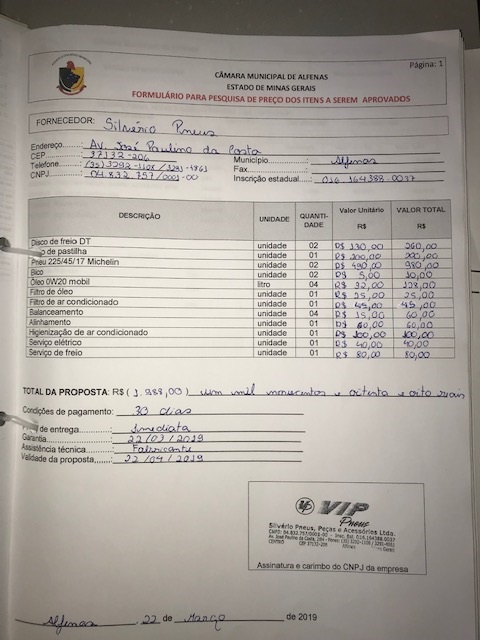 Página: 1
CÂMARA MUNICIPAL DE ALFENAS
ESTADO DE MINAS GERAIS
FORMULÁRIO PARA PESQUISA DE PREÇO DOS ITENS A SEREM APROVADOS
FORNECEDOR: Silvério Pneus
Endereço....: Av. José Paulino da Costa
CEP....: 37132-206 Município....: Alfenas
Telefone....: (35) 3292-1108 / 3291-4961 Fax....:
CNPJ....: 04.832.757/0001-00 Inscrição estadual....: 016.164388.0037
DESCRIÇÃO UNIDADE QUANTIDADE Valor Unitário R$ VALOR TOTAL R$
Disco de freio DT unidade 02 R$ 130,00 260,00
de pastilha unidade 01 R$ 200,00 200,00
Pneu 225/45/17 Michelin unidade 02 R$ 490,00 980,00
Bico unidade 02 R$ 5,00 10,00
Óleo 0W20 mobil litro 04 R$ 32,00 128,00
Filtro de óleo unidade 01 R$ 25,00 25,00
Filtro de ar condicionado unidade 01 R$ 45,00 45,00
Balanceamento unidade 04 R$ 15,00 60,00
Alinhamento unidade 01 R$ 60,00 60,00
Higienização de ar condicionado unidade 01 R$ 100,00 100,00
Serviço elétrico unidade 01 R$ 40,00 40,00
Serviço de freio unidade 01 R$ 80,00 80,00
TOTAL DA PROPOSTA: R$ (1.988,00) um mil novecentos e oitenta e oito reais
Condições de pagamento: 30 dias
de entrega....: Imediata
Garantia....: 22/03/2019
Assistência técnica....: Fabricante
Validade da proposta....: 22/04/2019
VIP
Pneus
Silvério Pneus, Peças e Acessórios Ltda.
Assinatura e carimbo do CNPJ da empresa
Alfenas, 22 de Março de 2019